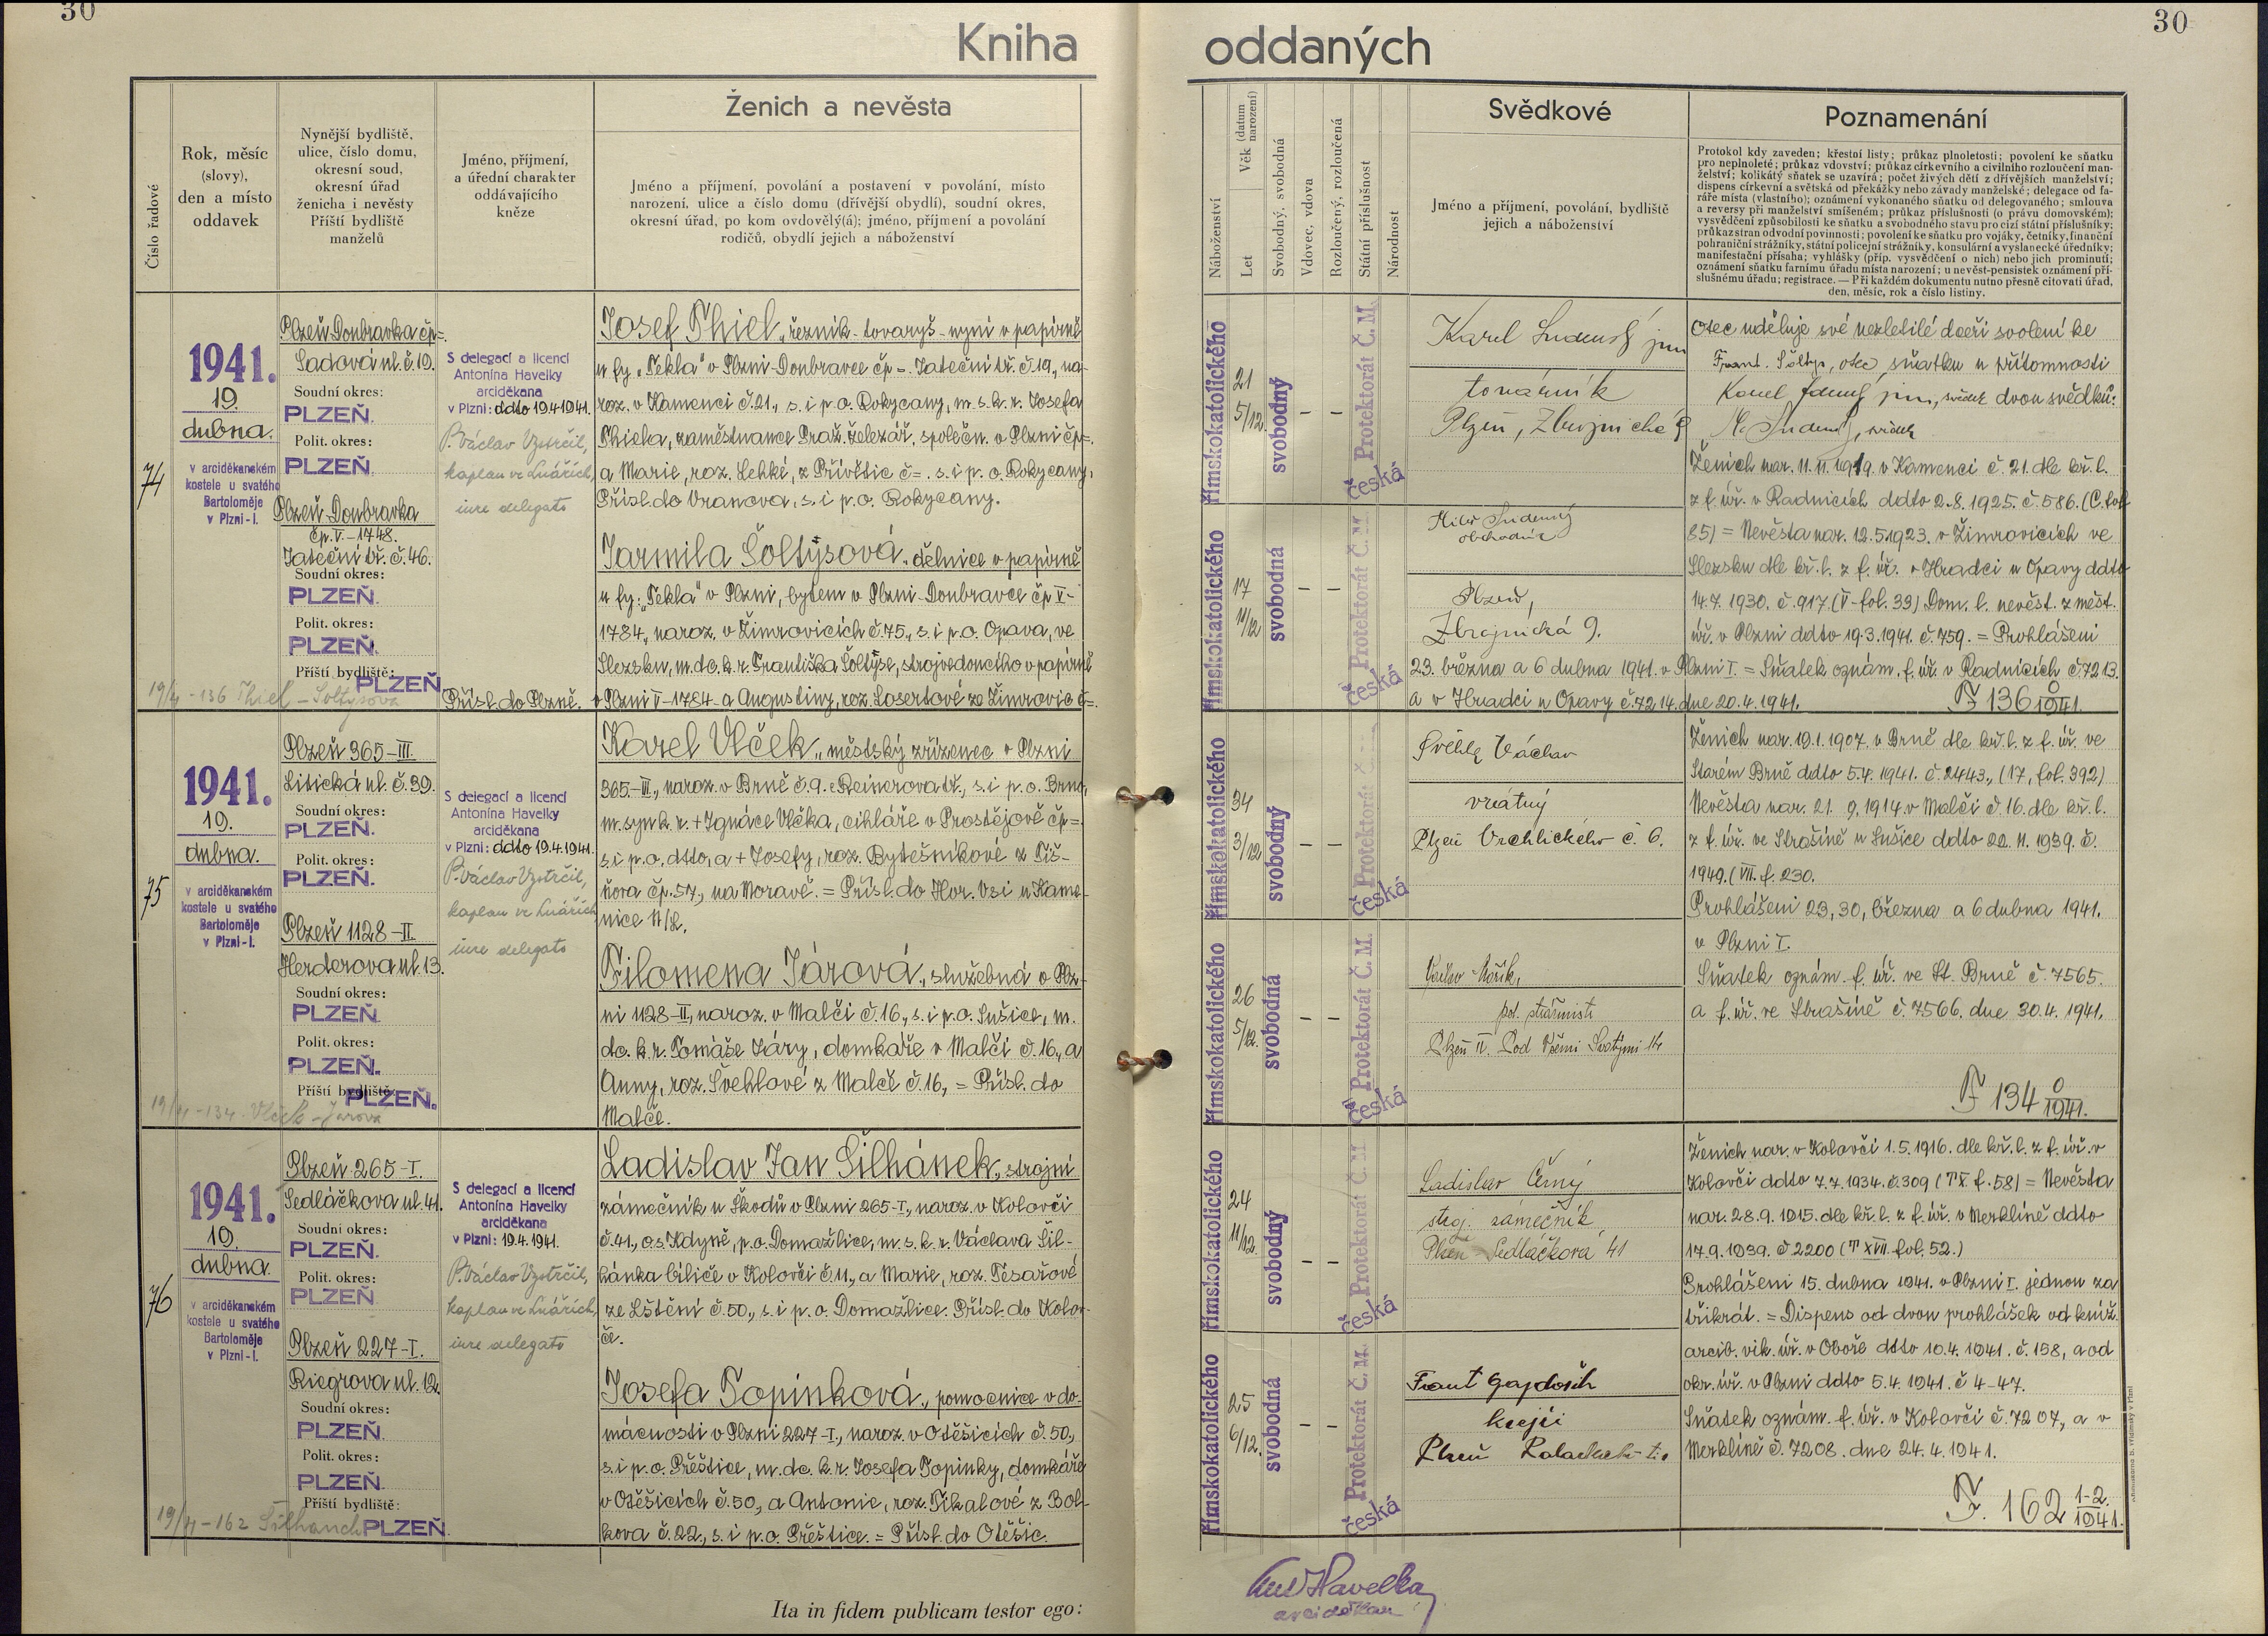 30
30
Kniha oddaných
Číslo řadové
Rok, měsíc
(slovy),
den a místo
oddavek
Nynější bydliště,
ulice, číslo domu,
okresní soud,
okresní úřad
ženicha i nevěsty
Příští bydliště
manželů
Jméno, příjmení,
a úřední charakter
oddávajícího
kněze
Ženich a nevěsta
Jméno a příjmení, povolání a postavení v povolání, místo
narození, ulice a číslo domu (dřívější obydlí), soudní okres,
okresní úřad, po kom ovdovělý(á); jméno, příjmení a povolání
rodičů, obydlí jejich a náboženství
Náboženství
Let
Věk (datum narození)
Svobodný, svobodná
Vdovec, vdova
Rozloučený, rozloučená
Státní příslušnost
Národnost
Svědkové
Jméno a příjmení, povolání, bydliště
jejich a náboženství
Poznamenání
Protokol kdy zaveden; křestní listy; průkaz plnoletosti; povolení ke sňatku
pro neplnoleté; průkaz vdovství; průkaz církevního a civilního rozloučení man-
želství; kolikátý sňatek se uzavírá; počet živých dětí z dřívějších manželství;
dispens církevní a světská od překážky nebo závady manželské; delegace od fa-
ráře místa (vlastního); oznámení vykonaného sňatku od delegovaného; smlouva
a reversy při manželství smíšeném; průkaz příslušnosti (o právu domovském);
vysvědčení způsobilosti ke sňatku a svobodného stavu pro cizí státní příslušníky;
průkaz stran odvodní povinnosti; povolení ke sňatku pro vojáky, četníky, finanční
pohraniční strážníky, státní policejní strážníky, konsulární a vyslanecké úředníky;
manifestační přísaha; vyhlášky (příp. vysvědčení o nich) nebo jich prominutí;
oznámení sňatku farnímu úřadu místa narození; u nevěst-pensistek oznámení pří-
slušnému úřadu; registrace. — Při každém dokumentu nutno přesně citovati úřad,
den, měsíc, rok a číslo listiny.
74
1941.
19.
dubna.
v arciděkanském
kostele u svatého
Bartoloměje
v Plzni - I.
Plzeň Doubravka čp=.
Sadová ul. č. 19.
Soudní okres:
PLZEŇ.
Polit. okres:
PLZEŇ.
Plzeň-Doubravka
čp. V.-1748.
Jateční tř. č. 46.
Soudní okres:
PLZEŇ.
Polit. okres:
PLZEŇ.
Příští bydliště:
PLZEŇ
19/4 - 136 Thiel - Šoltysová
S delegací a licencí
Antonína Havelky
arciděkana
v Plzni: ddto 19.4.1941.
P. Václav Vystrčil,
kaplan ve Lnářích,
iure delegato
Josef Thiel, řezník-tovaryš-nyní v papírně
u fy „Tekla" v Plzni-Doubravce čp=. Jateční tř. č. 19, na-
roz. v Kamenci č. 21., s. i p. o. Rokycany, m. s. k. r. Josefa
Thiela, zaměstnance Praž. železář. společn. v Plzni čp=.
a Marie, roz. Lehké, z Přívětic č=. s. i p. o. Rokycany,
Přísl. do Vranova, s. i p. o. Rokycany.
Jarmila Šoltýsová, dělnice v papírně
u fy: „Tekla" v Plzni, bytem v Plzni-Doubravce čp V-
1784, naroz. v Žimrovicích č. 75., s. i p. o. Opava, ve
Slezsku, m. dc. k. r. Františka Šoltýse, strojvedoucího v papírně
v Plzni V-1784 a Augustiny, roz. Losertové ze Žimrovic č=.
Přísl. do Plzně.
římskokatolického
21
5/12.
svobodný
– –
Protektorát Č. M.
česká
Karel
jun
továrník
Plzeň, Zbrojnická 9
římskokatolického
17
11/12
svobodná
– –
Protektorát Č. M
česká
obchodník
Plzeň,
Zbrojnická 9.
Otec uděluje své nezletilé dceři svolení ke
Frant. Šoltys, otec, sňatku u přítomnosti
Karel jun, svědek dvou svědků:
svědek
Ženich nar. 11. 11. 1919. v Kamenci č. 21. dle kř. l.
z f. úř. v Radnicích ddto 2. 8. 1925. č. 586. (C. fol
85) = Nevěsta nar. 12. 5. 1923. v Žimrovicích ve
Slezsku dle kř. l. z f. úř. v Hradci u Opavy ddto
14. 7. 1930. č. 917. (V- fol. 33) Dom. l. nevěst. z měst.
úř. v Plzni ddto 19. 3. 1941. č. 759. = Prohlášeni
23. března a 6 dubna 1941. v Plzni I. = Sňatek oznám. f. úř. v Radnicích č. 7213.
a v Hradci u Opavy č. 7214. dne 20. 4. 1941. F 136 0/1941.
75
1941.
19.
dubna.
v arciděkanském
kostele u svatého
Bartoloměje
v Plzni - I.
Plzeň 365-III.
Litická ul. č. 39.
Soudní okres:
PLZEŇ.
Polit. okres:
PLZEŇ.
Plzeň 1128-II.
Herderova ul. 13.
Soudní okres:
PLZEŇ
Polit. okres:
PLZEŇ.
Příští bydliště
PLZEŇ.
19/4 - 134. Vlček - Jarová
S delegací a licencí
Antonína Havelky
arciděkana
v Plzni: ddto 19.4.1941.
P. Václav Vystrčil,
kaplan ve Lnářích
iure delegato
Karel Vlček, městský zřízenec v Plzni
365.-III., naroz. v Brně č. 9. Reinerova tř., s. i p. o. Brno,
m. syn k. r. + Ignáce Vlčka, cihláře v Prostějově čp=.
s. i p. o. dtto, a + Josefy, roz. Bytešníkové z Tiš-
ňova čp. 57, na Moravě. = Přísl. do Hor. Vsi u Kame-
nice n/L.
Filomena Járová, služebná v Plz-
ni 1128-II, naroz. v Malči č. 16, s. i p. o. Sušice, m.
dc. k. r. Tomáše Járy, domkáře v Malči č. 16., a
Anny, roz. Švehlové z Malče č. 16, = Přísl. do
Malče.
římskokatolického
34
3/12
svobodný
– –
Protektorát Č.
česká
Švehla Václav
vrátný
Plzeň Vrchlického č. 6.
římskokatolického
26
5/12.
svobodná
– –
Protektorát Č. M.
česká
Václav
pol. strážmistr
Plzeň IV. Pod Všemi Svatými 14
Ženich nar. 19. 1. 1907. v Brně dle kř. l. z f. úř. ve
Starém Brně ddto 5. 4. 1941. č. 2443., (17, fol. 392)
Nevěsta nar. 21. 9. 1914. v Malči č. 16. dle kř. l.
z f. úř. ve Strašíně u Sušice ddto 22. 11. 1939. č.
1949. (VII. f. 230.
Prohlášeni 23, 30, března a 6 dubna 1941.
v Plzni I.
Sňatek oznám. f. úř. ve St. Brně č. 7565.
a f. úř. ve Strašíně č. 7566. dne 30. 4. 1941.
F 134 0/1941.
76
1941.
19.
dubna.
v arciděkanském
kostele u svatého
Bartoloměje
v Plzni - I.
Plzeň 265-I.
Sedláčkova ul. 41.
Soudní okres:
PLZEŇ.
Polit. okres:
PLZEŇ.
Plzeň 227-I.
Riegrova ul. 12.
Soudní okres:
PLZEŇ.
Polit. okres:
PLZEŇ.
Příští bydliště:
PLZEŇ
19/4 - 162
S delegací a licencí
Antonína Havelky
arciděkana
v Plzni: 19.4.1941.
P. Václav Vystrčil,
kaplan ve Lnářích,
iure delegato
Ladislav Jan Šilhánek, strojní
zámečník u Škodů v Plzni 265-I., naroz. v Koloveči
č. 41., o. s. Kdyně, p. o. Domažlice, m. s. k. r. Václava Šil-
hánka biliče v Koloveči č. 11., a Marie, roz. Tesařové
ze Lštění č. 50., s. i p. o. Domažlice. Přísl. do Kolov-
če.
Josefa Topinková, pomocnice v do-
mácnosti v Plzni 227-I., naroz. v Otěšicích č. 50.,
s. i p. o. Přeštice, m. dc. k. r. Josefa Topinky, domkáře
v Otěšicích č. 50., a Antonie, roz. Říkalové z Bol-
kova č. 22., s. i p. o. Přeštice. = Přísl. do Otěšic.
římskokatolického
24
11/12.
svobodný
– –
Protektorát Č. M
česká
Ladislav Černý
stroj. zámečník
Plzeň Sedláčkova 41
římskokatolického
25
6/12.
svobodná
– –
Protektorát Č. M.
česká
Frant Gajdošík
krejčí
Plzeň
Ženich nar. v Koloveči 1. 5. 1916. dle kř. l. z f. úř. v
Koloveči ddto 7. 7. 1934. č. 309 (TX. f. 58) = Nevěsta
nar. 28. 9. 1915. dle kř. l. z f. úř. v Merklíně ddto
17. 9. 1939. č 2200 (T XVII. fol. 52.)
Prohlášeni 15. dubna 1941. v Plzni I. jednou za
třikrát. = Dispens od dvou prohlášek od kníž.
arcib. vik. úř. v Oboře dtto 10. 4. 1941. č. 158, a od
okr. úř. v Plzni ddto 5. 4. 1941. č 4-47.
Sňatek oznám. f. úř. v Koloveči č. 7207, a v
Merklíně č. 7208. dne 24. 4. 1941.
F. 162 1-2./1941.
Ita in fidem publicam testor ego:
Ant Havelka
arciděkan